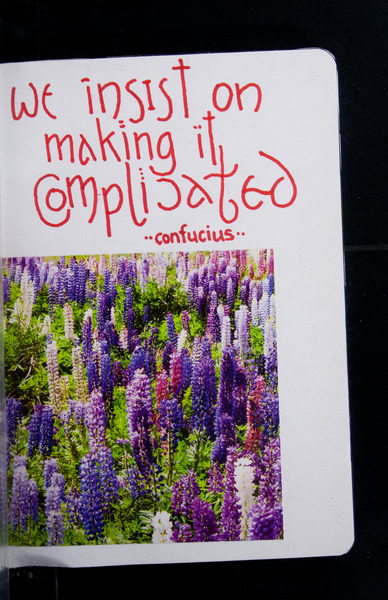 We insist on
making it
Complicated
..confucius..